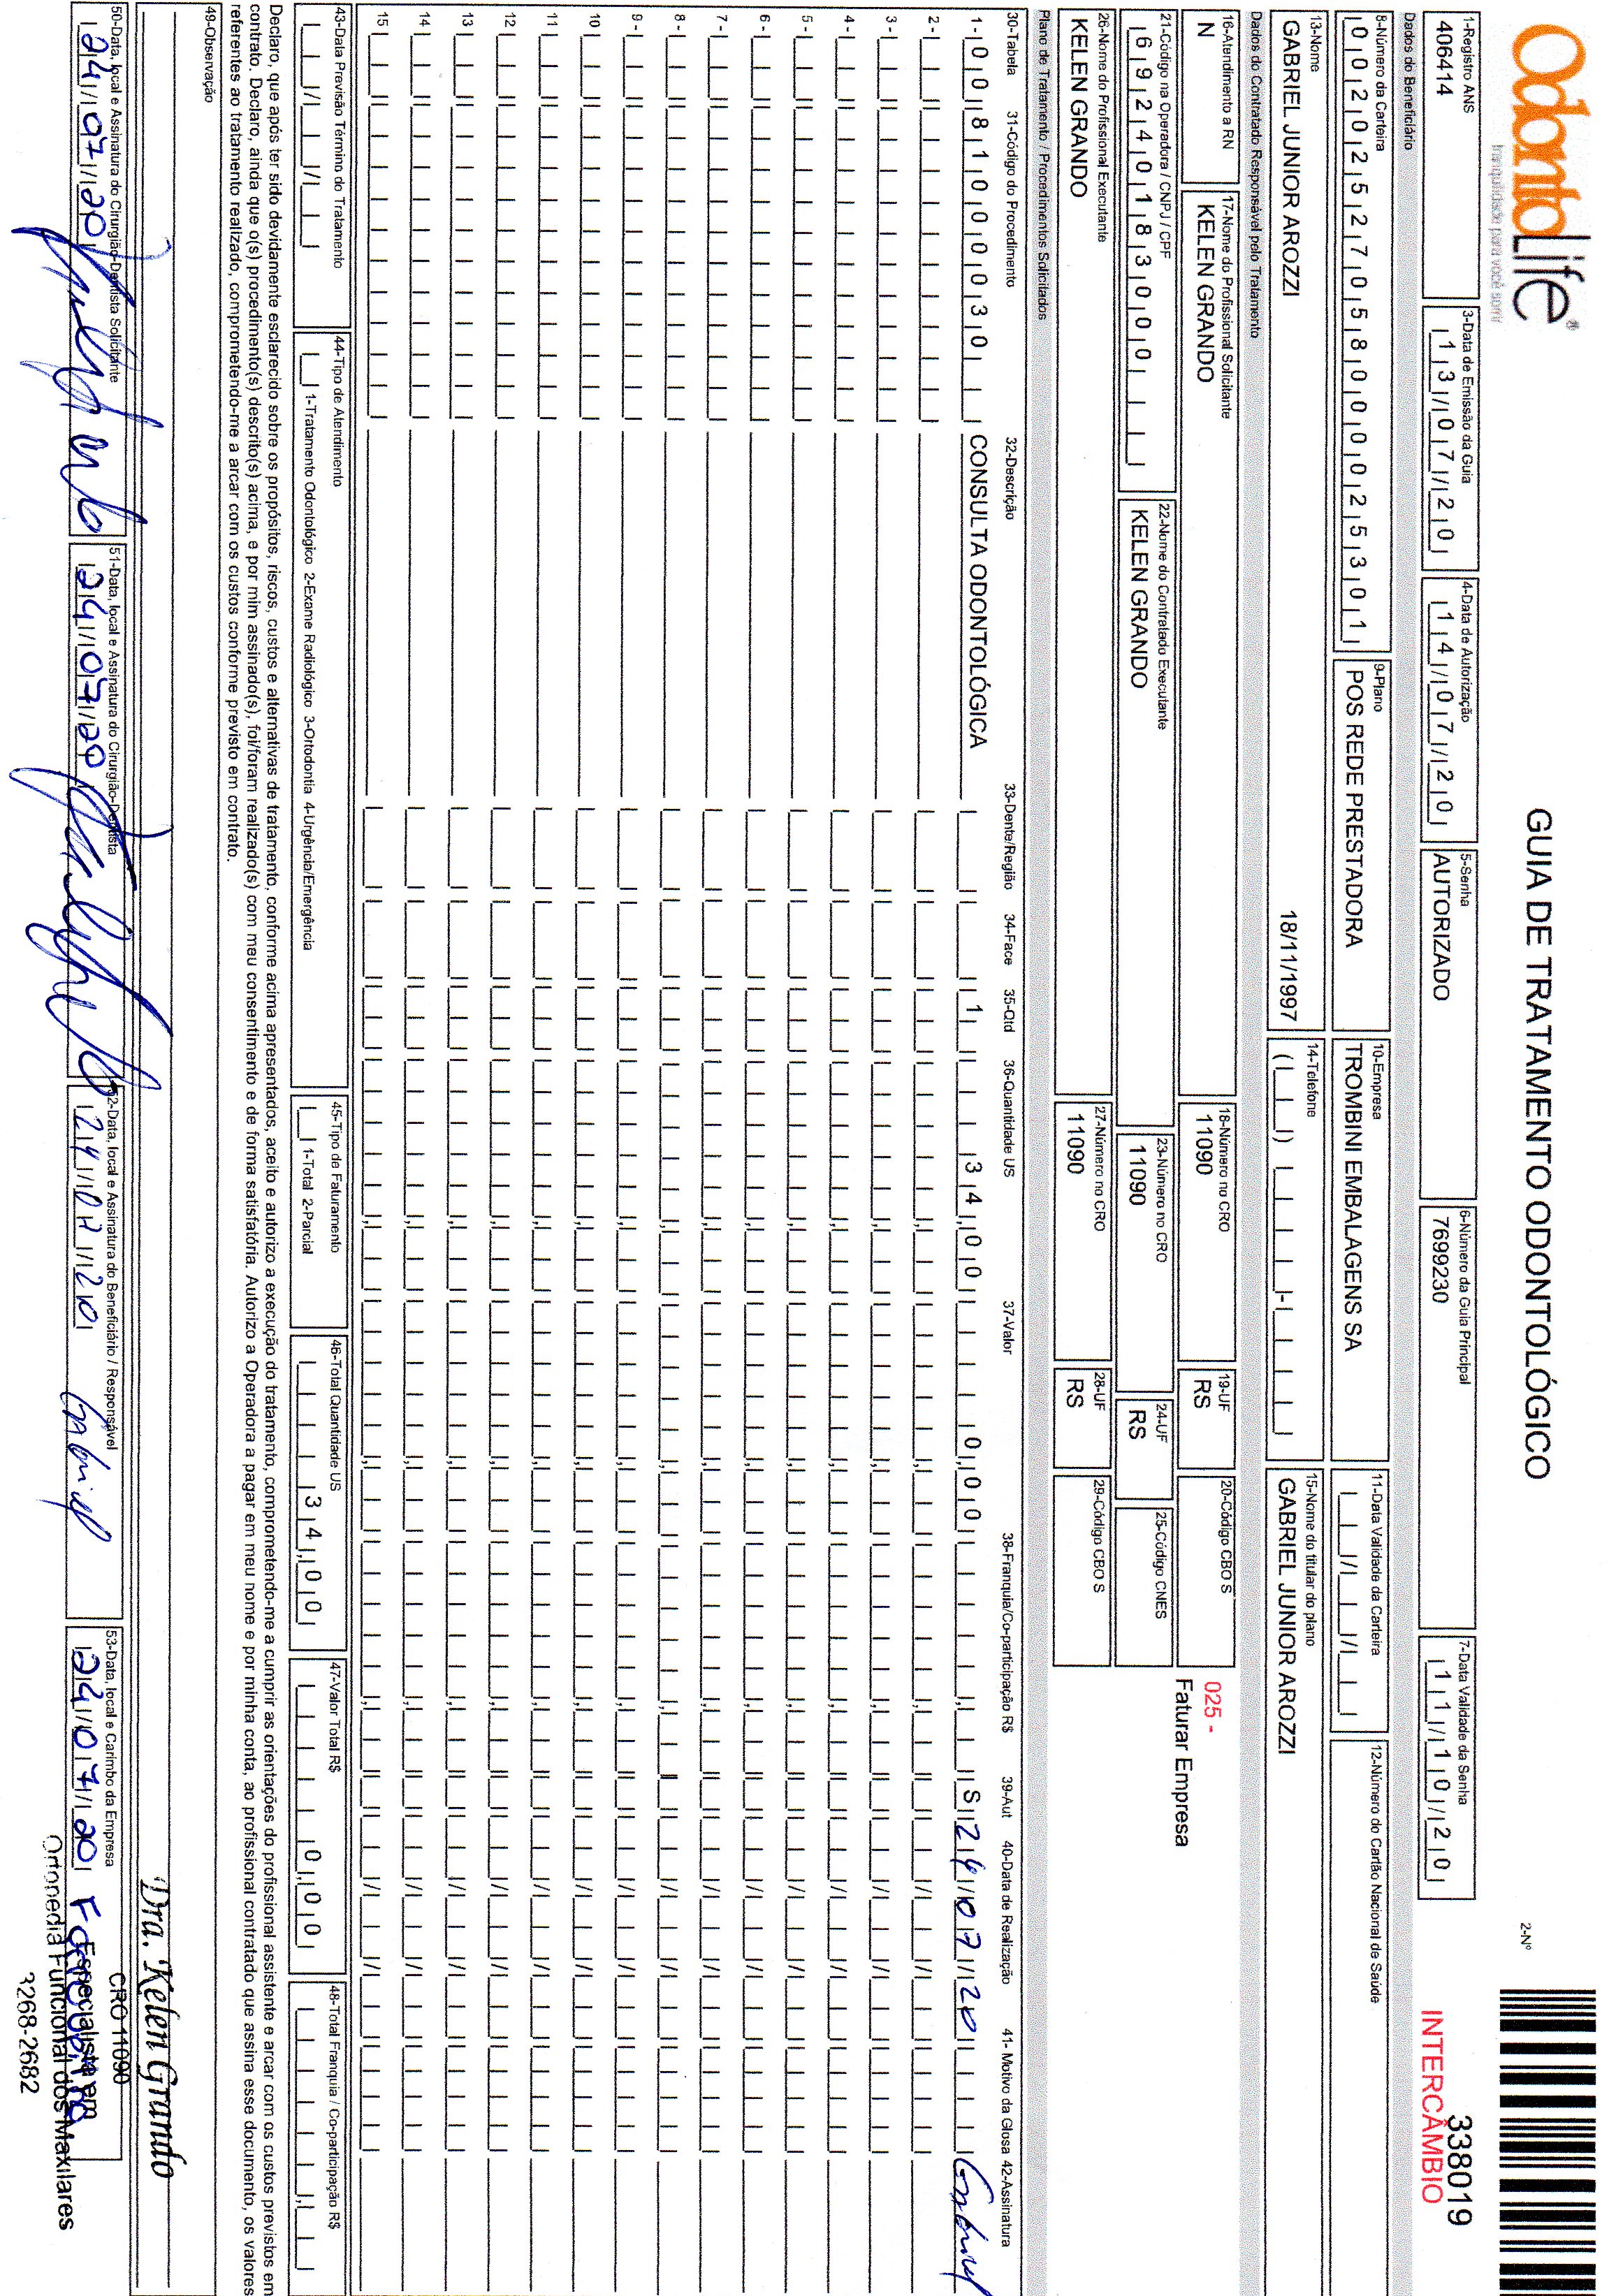 OdontoLife®
tranquilidade para você sorrir
GUIA DE TRATAMENTO ODONTOLÓGICO
2-Nº
338019
INTERCÂMBIO
1-Registro ANS
406414
3-Data de Emissão da Guia
13/07/20
4-Data de Autorização
14/07/20
5-Senha
AUTORIZADO
6-Número da Guia Principal
7699230
7-Data Validade da Senha
11/10/20
Dados do Beneficiário
8-Número da Carteira
00202527058000025301
9-Plano
POS REDE PRESTADORA
10-Empresa
TROMBINI EMBALAGENS SA
11-Data Validade da Carteira
12-Número do Cartão Nacional de Saúde
13-Nome
GABRIEL JUNIOR AROZZI 18/11/1997
14-Telefone
15-Nome do titular do plano
GABRIEL JUNIOR AROZZI
Dados do Contratado Responsável pelo Tratamento
16-Atendimento a RN
N
17-Nome do Profissional Solicitante
KELEN GRANDO
18-Número no CRO
11090
19-UF
RS
20-Código CBO S
025 -
Faturar Empresa
21-Código na Operadora / CNPJ / CPF
69240183000
22-Nome do Contratado Executante
KELEN GRANDO
23-Número no CRO
11090
24-UF
RS
25-Código CNES
26-Nome do Profissional Executante
KELEN GRANDO
27-Número no CRO
11090
28-UF
RS
29-Código CBO S
Plano de Tratamento / Procedimentos Solicitados
30-Tabela 31-Código do Procedimento 32-Descrição 33-Dente/Região 34-Face 35-Qtd 36-Quantidade US 37-Valor 38-Franquia/Co-participação R$ 39-Aut 40-Data de Realização 41- Motivo da Glosa 42-Assinatura
1- 00 81000030 CONSULTA ODONTOLÓGICA 1 34,00 0,00 S 24/07/20 Gabriel
2-
3-
4-
5-
6-
7-
8-
9-
10
11
12
13
14
15
43-Data Previsão Término do Tratamento
44-Tipo de Atendimento
1-Tratamento Odontológico 2-Exame Radiológico 3-Ortodontia 4-Urgência/Emergência
45-Tipo de Faturamento
1-Total 2-Parcial
46-Total Quantidade US
34,00
47-Valor Total R$
0,00
48-Total Franquia / Co-participação R$
Declaro, que após ter sido devidamente esclarecido sobre os propósitos, riscos, custos e alternativas de tratamento, conforme acima apresentados, aceito e autorizo a execução do tratamento, comprometendo-me a cumprir as orientações do profissional assistente e arcar com os custos previstos em
contrato. Declaro, ainda que o(s) procedimento(s) descrito(s) acima, e por mim assinado(s), foi/foram realizado(s) com meu consentimento e de forma satisfatória. Autorizo a Operadora a pagar em meu nome e por minha conta, ao profissional contratado que assina esse documento, os valores
referentes ao tratamento realizado, comprometendo-me a arcar com os custos conforme previsto em contrato.
49-Observação
50-Data, local e Assinatura do Cirurgião-Dentista Solicitante
24/07/20
51-Data, local e Assinatura do Cirurgião-Dentista
24/07/20
52-Data, local e Assinatura do Beneficiário / Responsável
24/07/20 Gabriel
53-Data, local e Carimbo da Empresa
24/07/20
Dra. Kelen Grando
CRO 11090
Especialista em
Ortopedia Funcional dos Maxilares
3268-2682